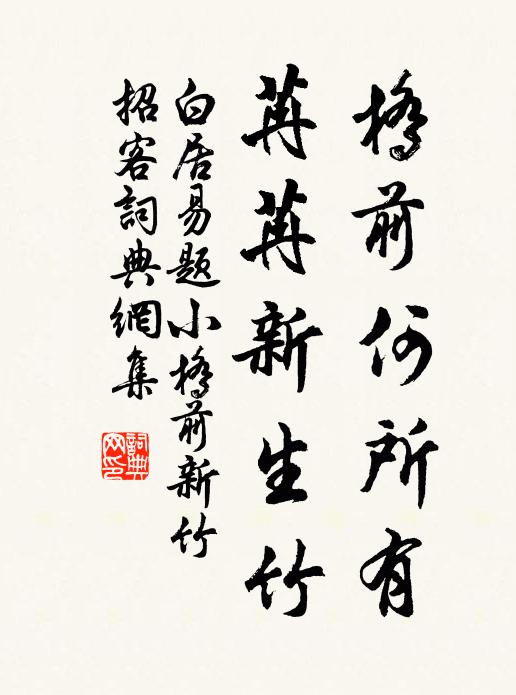 橋前何所有
苒苒新生竹
白居易题小橋前新竹
招客詞典網集
詞典网印